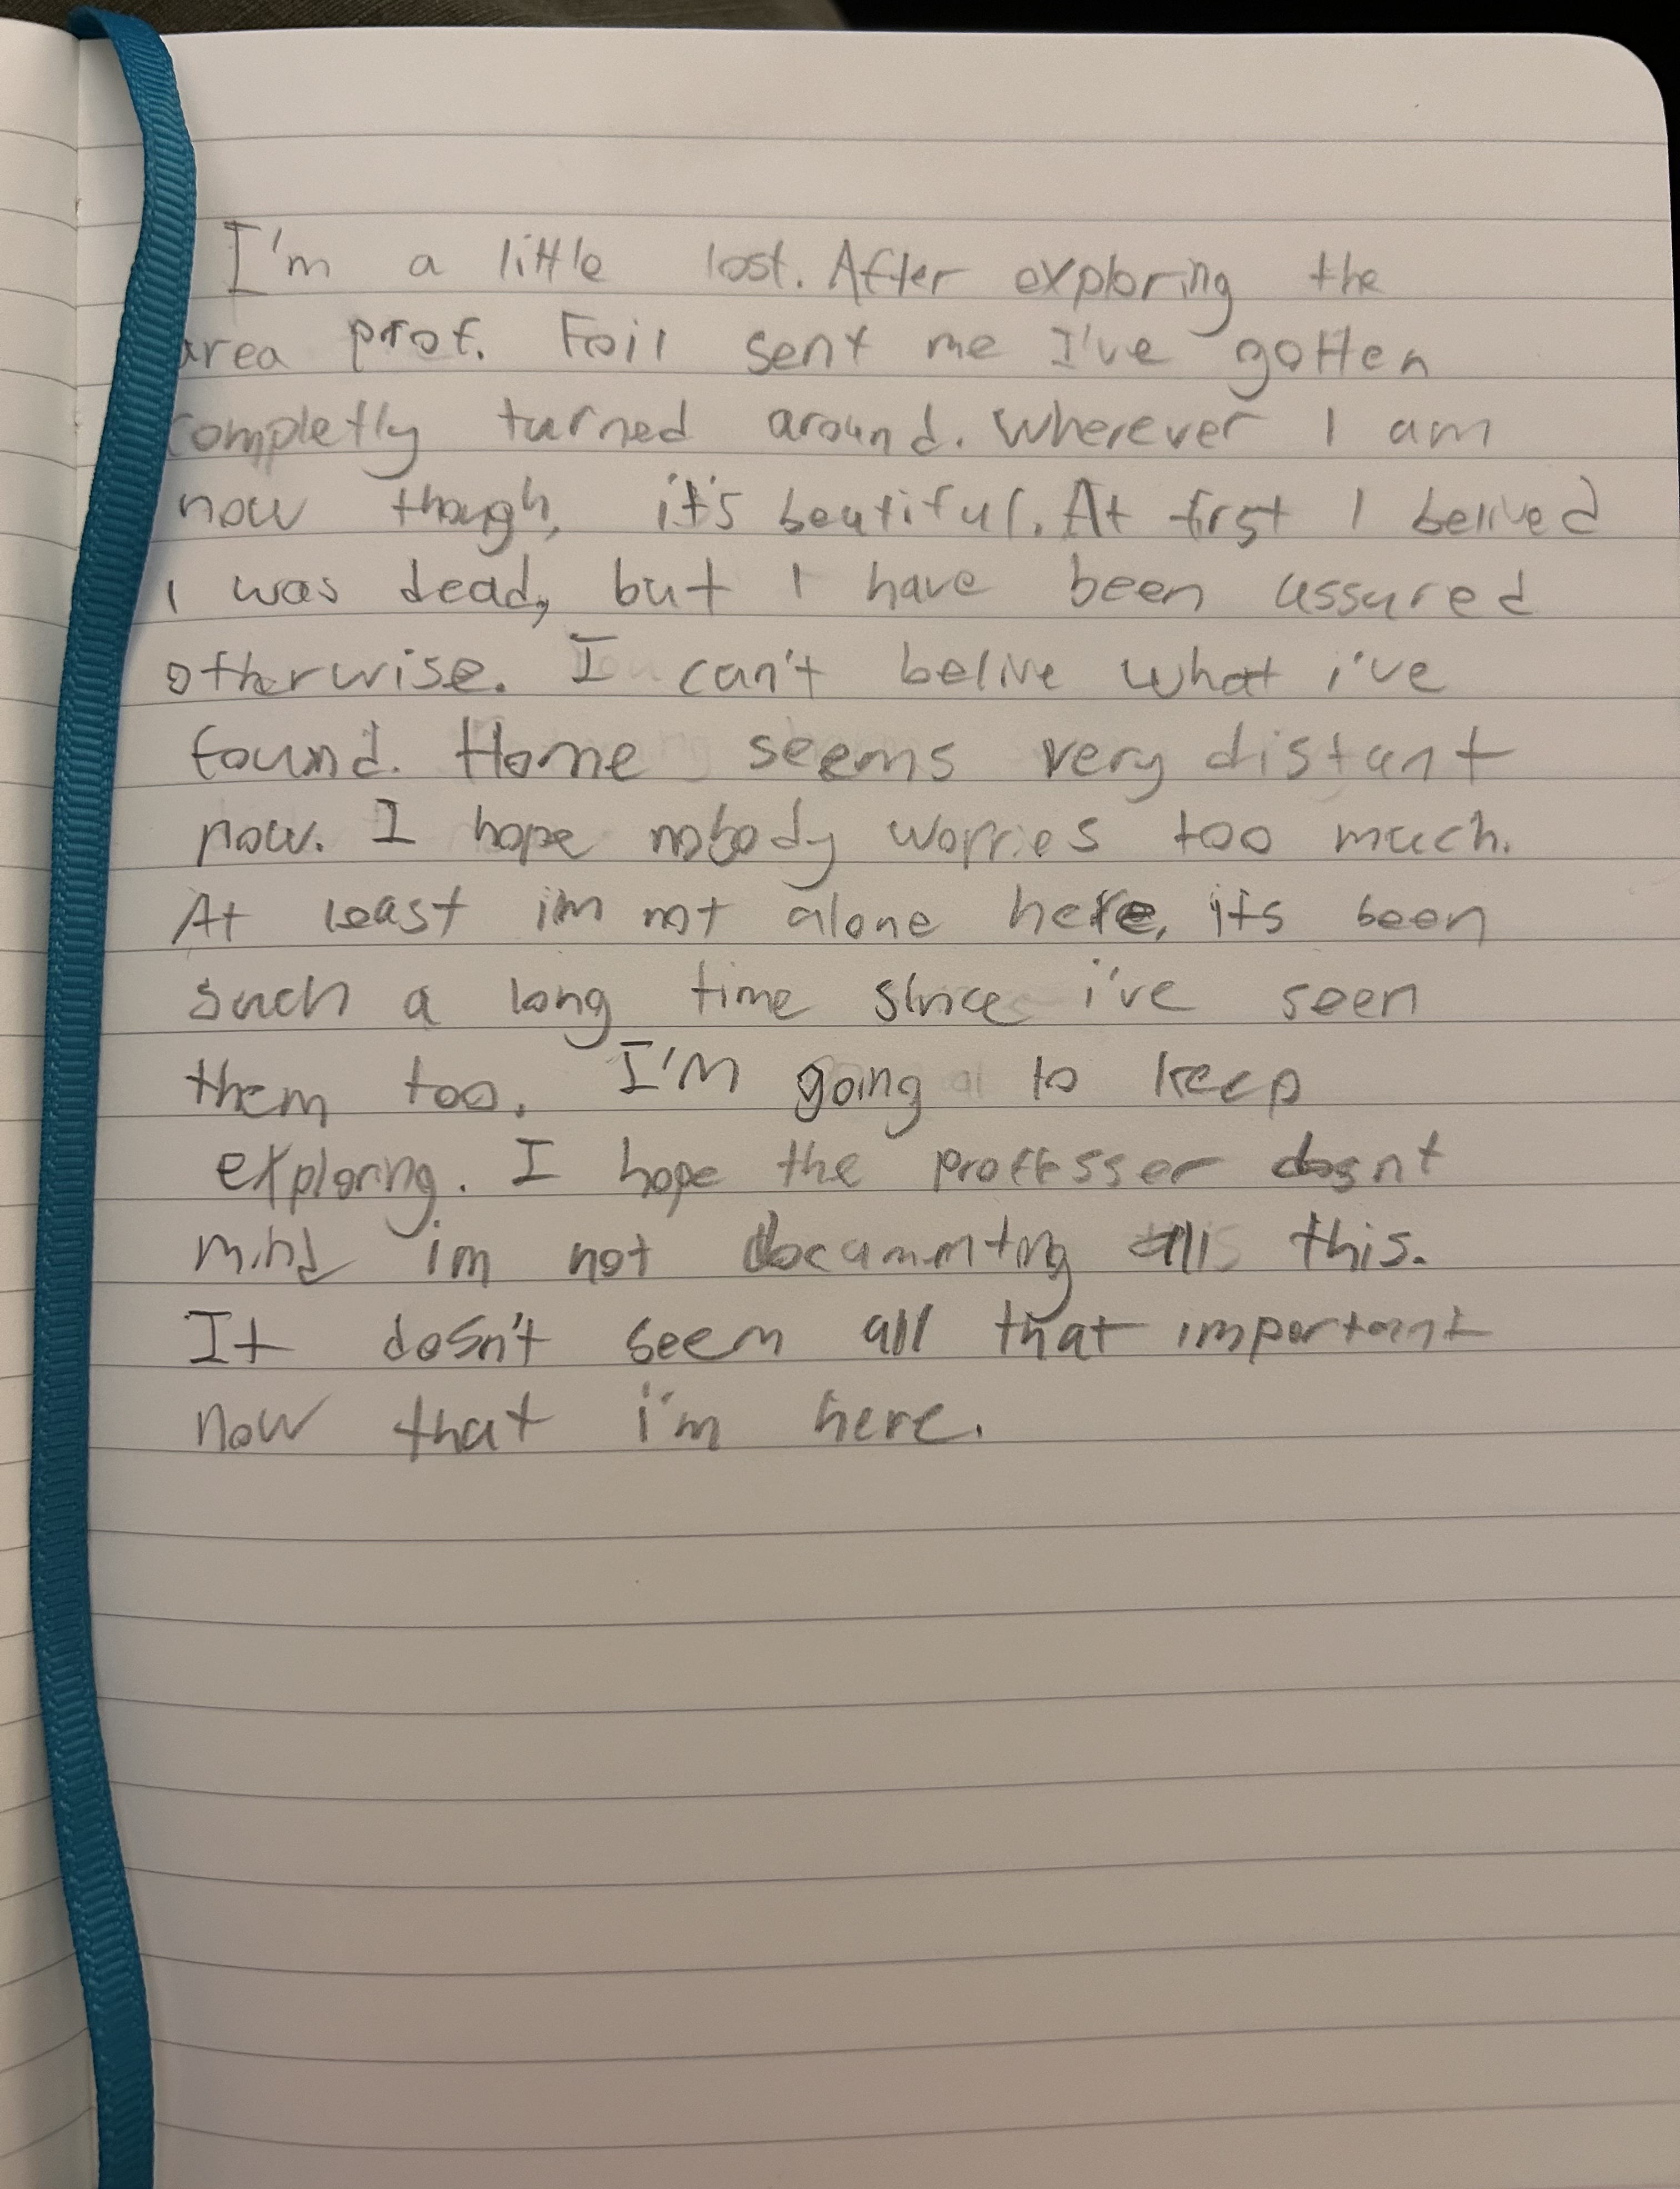 I'm a little lost. After exploring the
area prof. Foil sent me I've gotten
completly turned around. Wherever I am
now though, it's beutiful. At first I belived
I was dead, but I have been assured
otherwise. I can't belive what i've
found. Home seems very distant
now. I hope nobody worries too much.
At least im not alone here, its been
such a long time since i've seen
them too. I'M going to keep
exploring. I hope the proffesser dosnt
mind im not documnting this.
It dosn't seem all that important
now that i'm here.